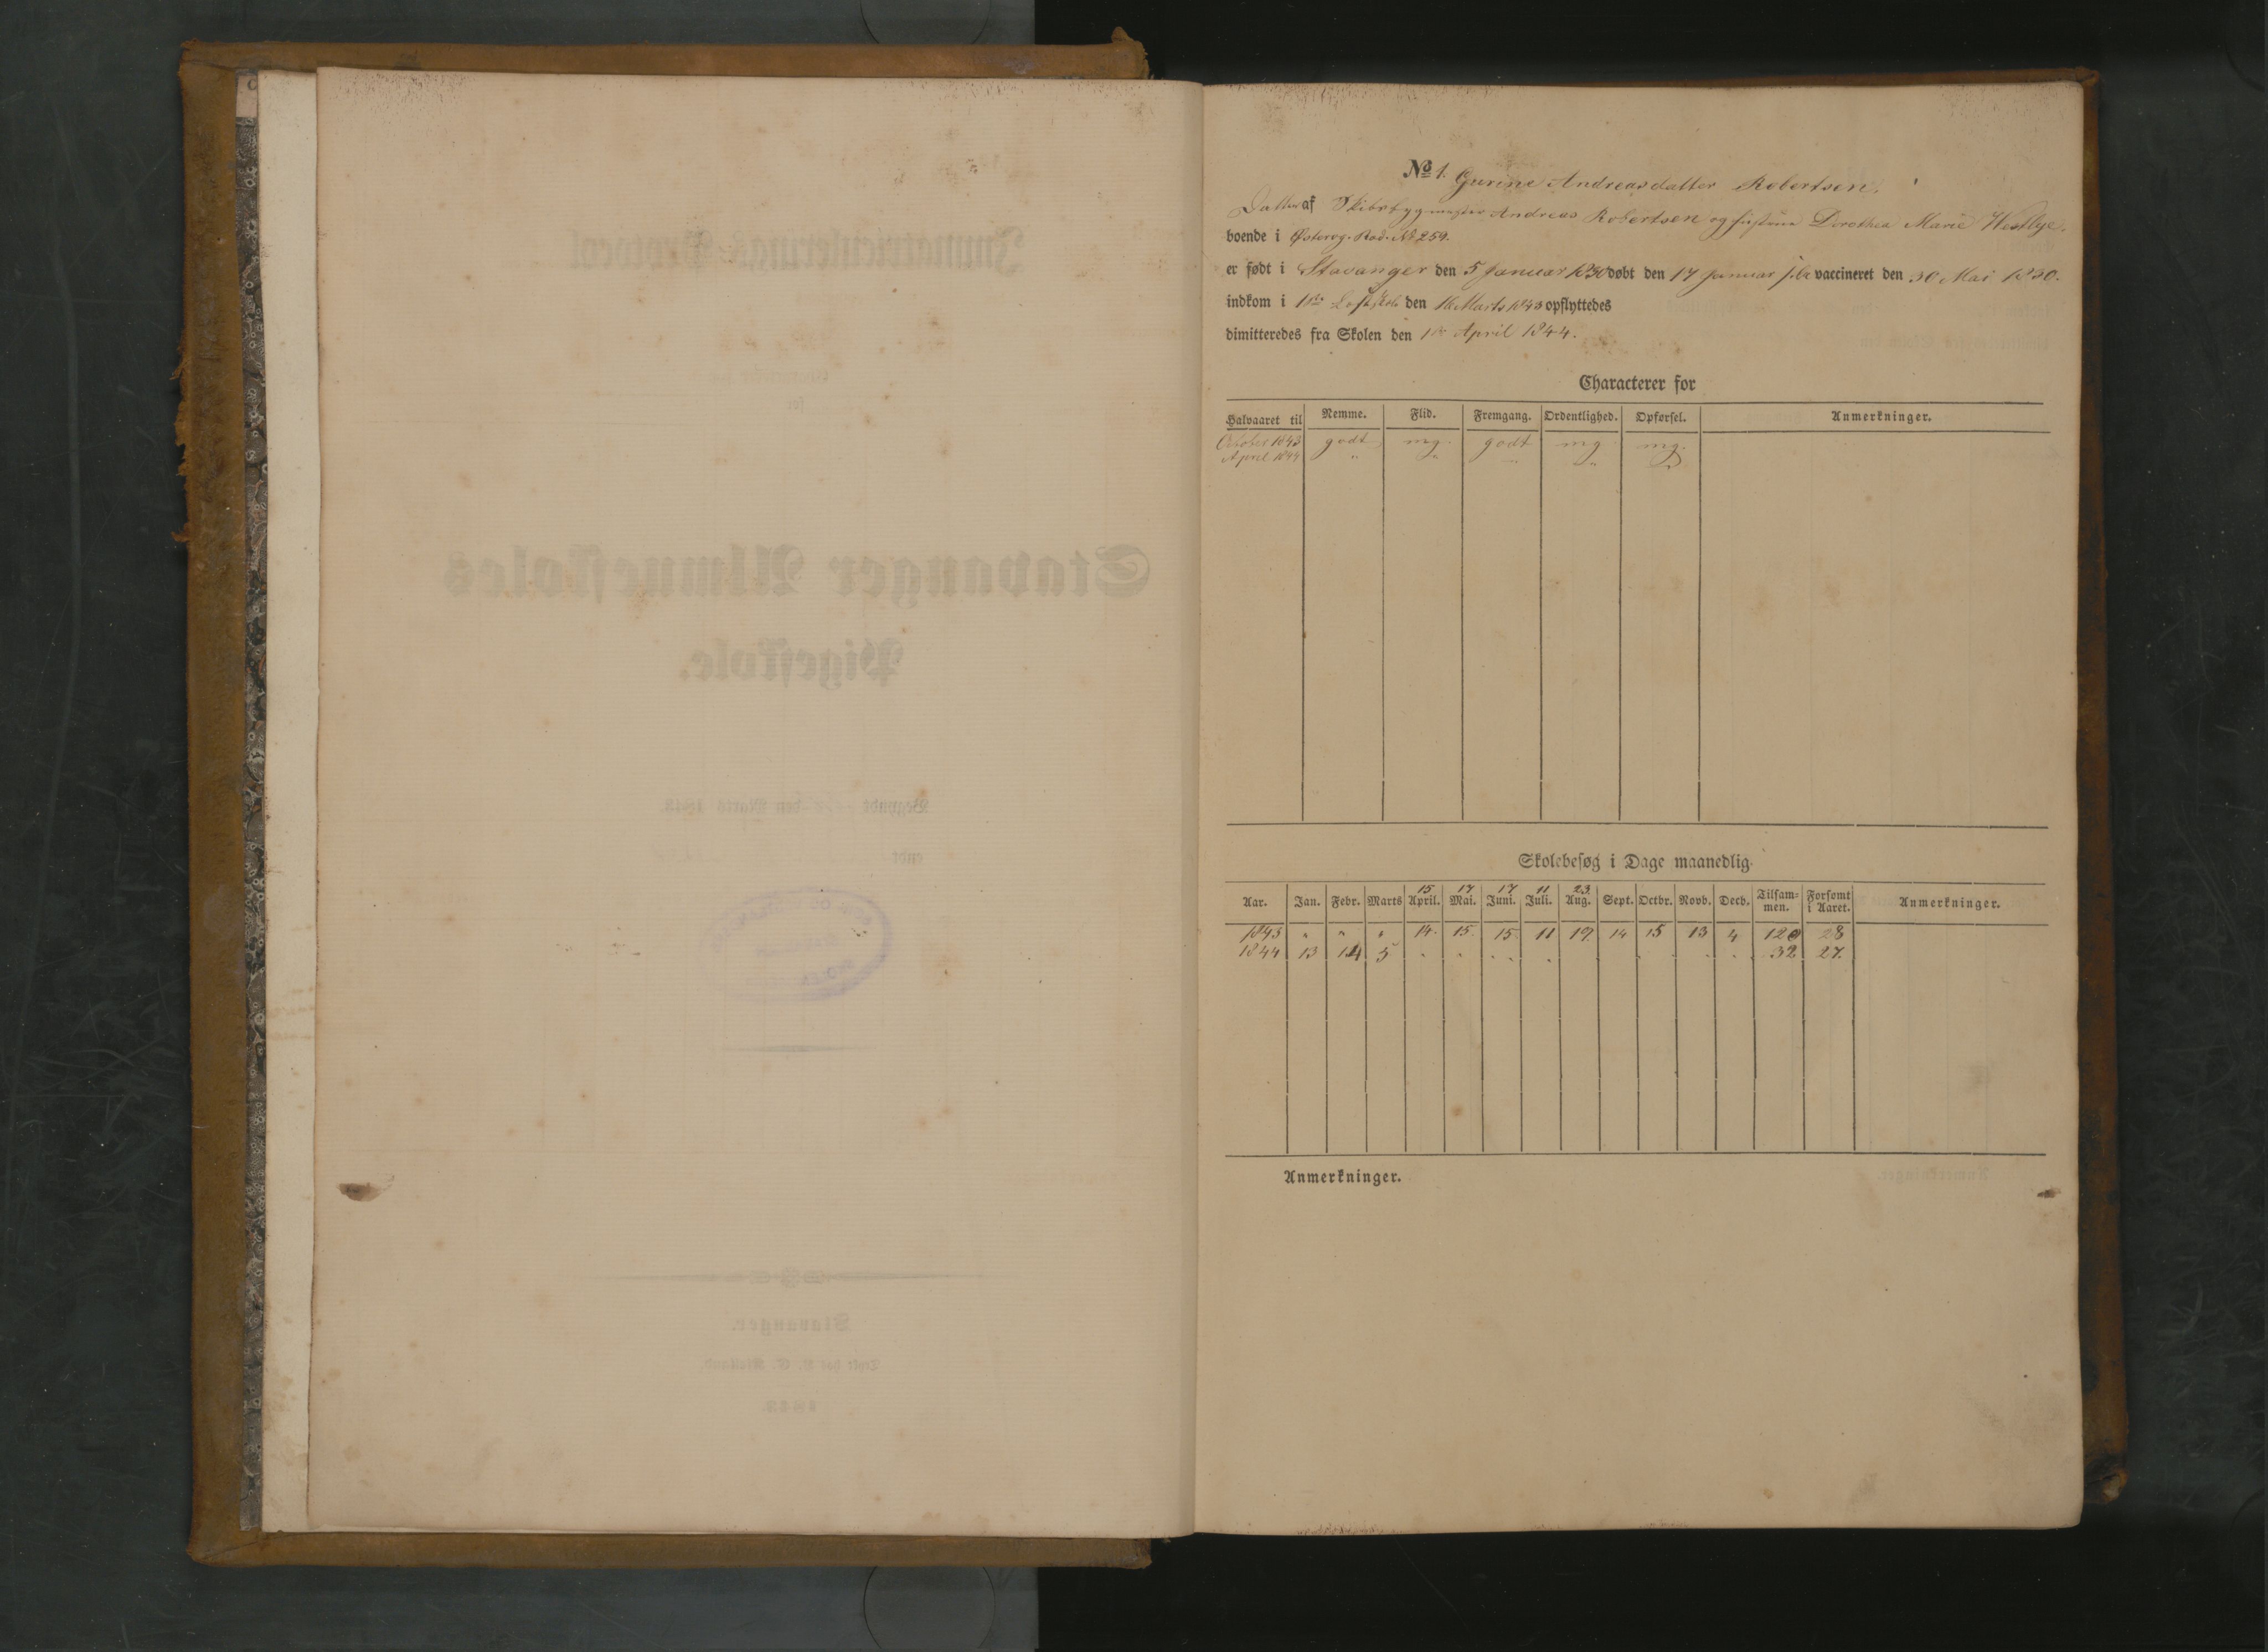 Immatriculerings Protocol
for
Stavanger Almueskoles
Pigeskole.
Begyndt den Marts 1843.
endt
Stavanger.
1843.
No 1. Gurine Andreasdatter Robertsen.
Datter af Skibsbygmester Andreas Robertsen og Hustrue Dorothea Marie Westlye.
boende i Østerog. Rod. No 259.
er født i Stavanger den 5 Januar 1830 døbt den 17 Januar s. A. vaccineret den 30 Mai 1830.
indkom i 1ste den 16 Marts 1843 opflyttedes
dimitteredes fra Skolen den 1ste April 1844.
Characterer for
Halvaaret til Nemme. Flid. Fremgang. Ordentlighed. Opførsel. Anmerkninger.
October 1843 godt mg. godt mg mg.
April 1844 " " " " "
Skolebesøg i Dage maanedlig.
15 17 17 11 23.
Aar. Jan. Febr. Marts April. Mai. Juni. Juli. Aug. Sept. Octbr. Novb. Decb. Tilsam=men. Forsømt i Aaret. Anmerkninger.
1843 " " " 14. 15. 15. 11 19. 14 15 13 4 120 28
1844 13 14 5 . . . . . . . . . 32 27.
Anmerkninger.